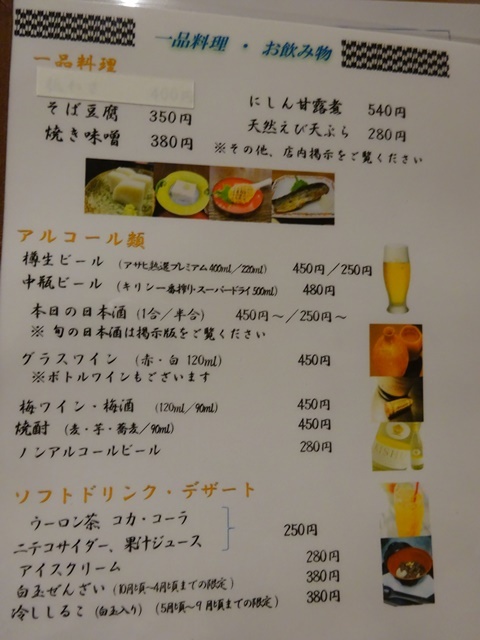 一品料理 ・ お飲み物
一品料理
そば豆腐 350円
焼き味噌 380円
にしん甘露煮 540円
天然えび天ぷら 280円
※その他、店内掲示をご覧ください
アルコール類
樽生ビール (アサヒ熟選プレミアム400ml/220ml) 450円/250円
中瓶ビール (キリン一番搾り・スーパードライ500ml) 480円
本日の日本酒 (1合/半合) 450円~/250円~
※ 旬の日本酒は掲示版をご覧ください
グラスワイン (赤・白 120ml) 450円
※ボトルワインもございます
梅ワイン・梅酒 (120ml/90ml) 450円
焼酎 (麦・芋・蕎麦/90ml) 450円
ノンアルコールビール 280円
ソフトドリンク・デザート
ウーロン茶 コカ・コーラ
ニテコサイダー、果汁ジュース 250円
アイスクリーム 280円
白玉ぜんざい (10月頃~4月頃までの限定) 380円
冷ししるこ (白玉入り) (5月頃~9月頃までの限定) 380円